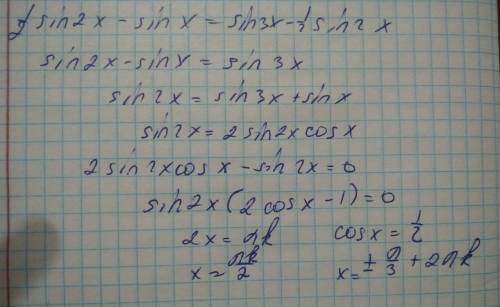 ½ sin2x - sinx = sin3x - ½ sin2x
sin2x - sinx = sin3x
sin2x = sin3x + sinx
sin2x = 2 sin2x cosx
2 sin2x cosx - sin2x = 0
sin2x (2 cosx - 1) = 0
2x = πk cosx = ½
x = πk/2 x = ± π/3 + 2πk